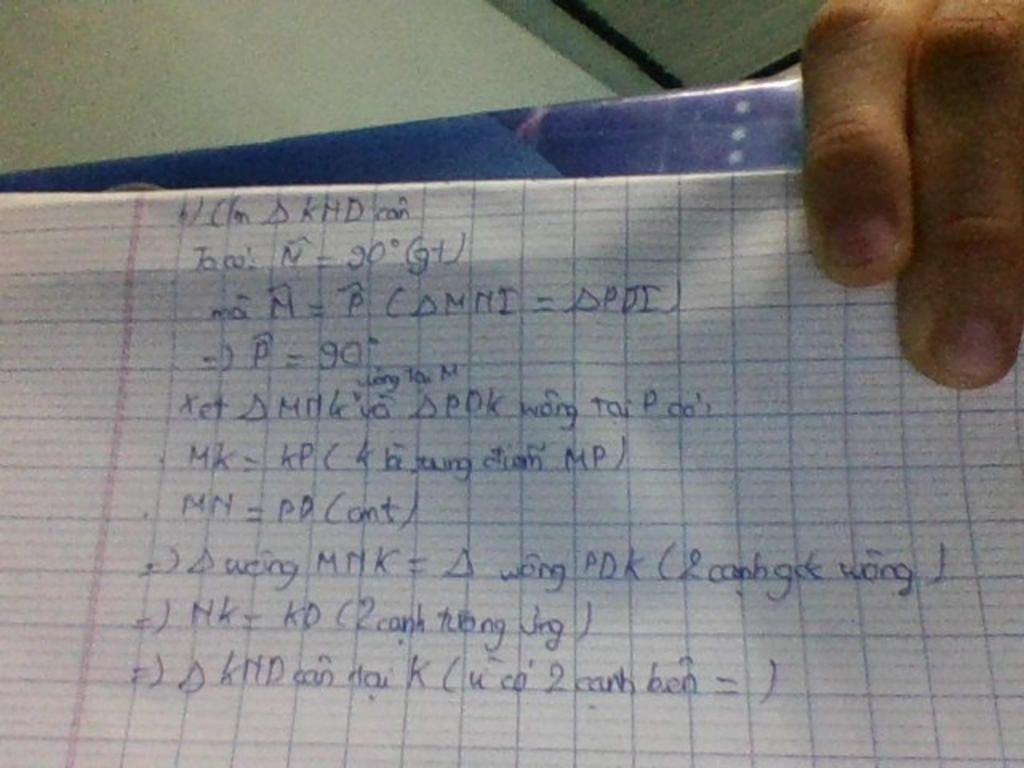 b) C/m Δ KND cân
Ta có: N̂ = 90° (gt)
mà M̂ = P̂ ( Δ MNI = Δ PDI )
=) P̂ = 90°
vuông tại M
Xét Δ MNK và Δ PDK vuông tại P có:
MK = KP ( K là trung điểm MP )
MN = PD (cmt)
=) Δ vuông MNK = Δ vuông PDK ( 2 cạnh góc vuông )
=) NK = KD ( 2 cạnh tương ứng )
=) Δ KND cân tại K ( vì có 2 cạnh bên = )